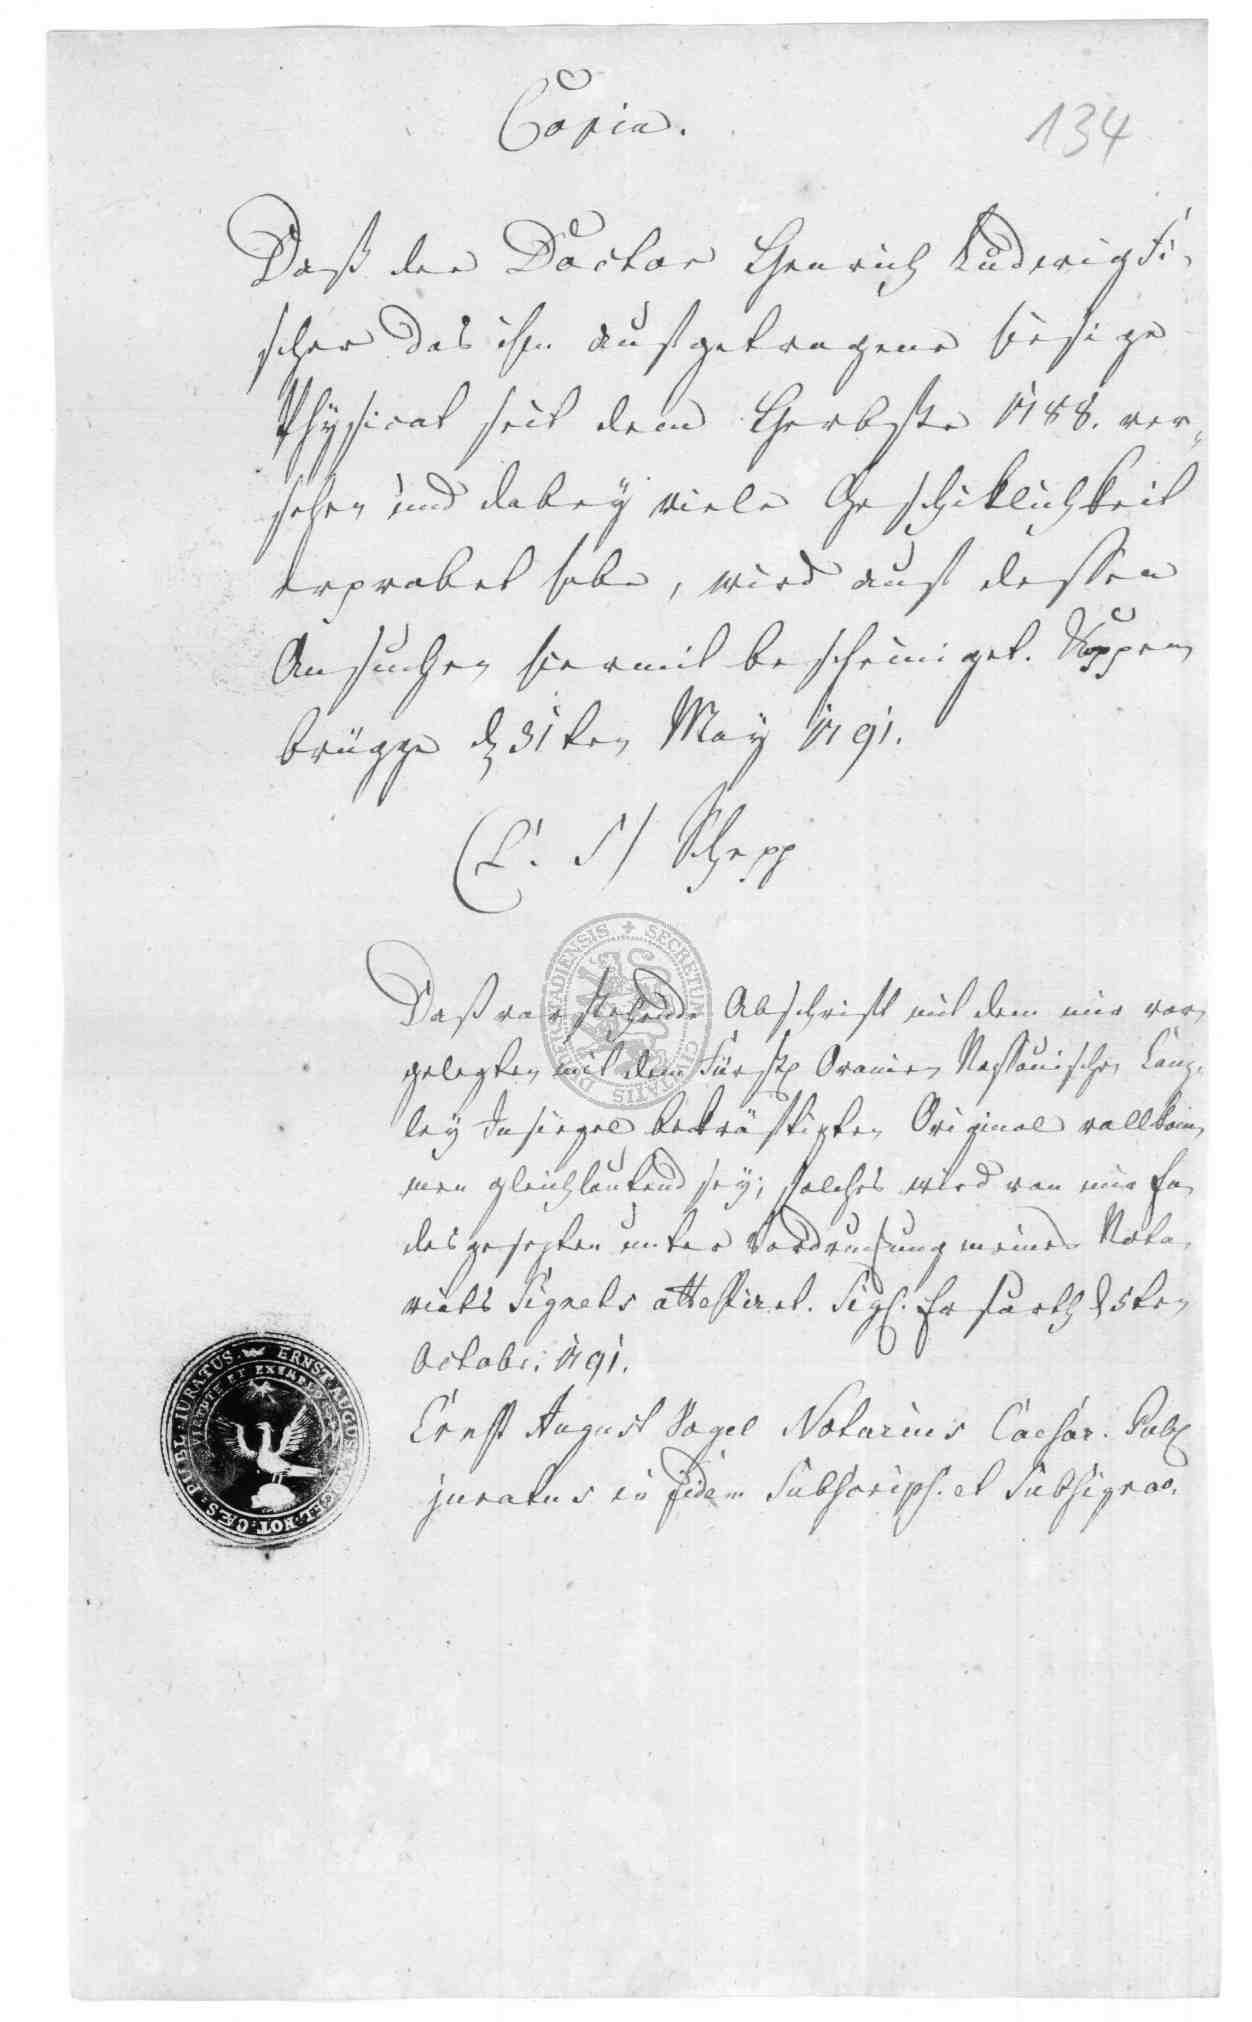 Copia.
134
Daß der Doctor Henrich Ludewig Fi-
scher das ihm aufgetragene hiesige
Physicat seit dem Herbste 1788. ver-
sehen und dabey viele Geschiklichkeit
erprobet habe, wird auf dessen
Ansuchen hiermit bescheiniget. Coppen
brügge d 31ten May 1791.
(L. S) Schepp
Daß vorstehende Abschrift mit dem mir vor
gelegten mit dem Fürstl Oranien Nassauischen Canz-
ley Insiegel bekräftigten Original vollkom
men gleichlautend sey; solches wird von mir En
desgesezten unter Vordruckung meines Nota
riats Signets attestiret. Sigl. Erfurth d 5ten
Octobr. 1791.
Ernst August Vogel Notarius Caesar. Publ
juratus in fidem Subscrips. et Subsignav.
ERNST AUGUST VOGEL NOT: CÆS: PUBL: IURATUS.
VIRTUTE ET EXEMPLO
SECRETUM CIVITATIS DARMSTADIENSIS